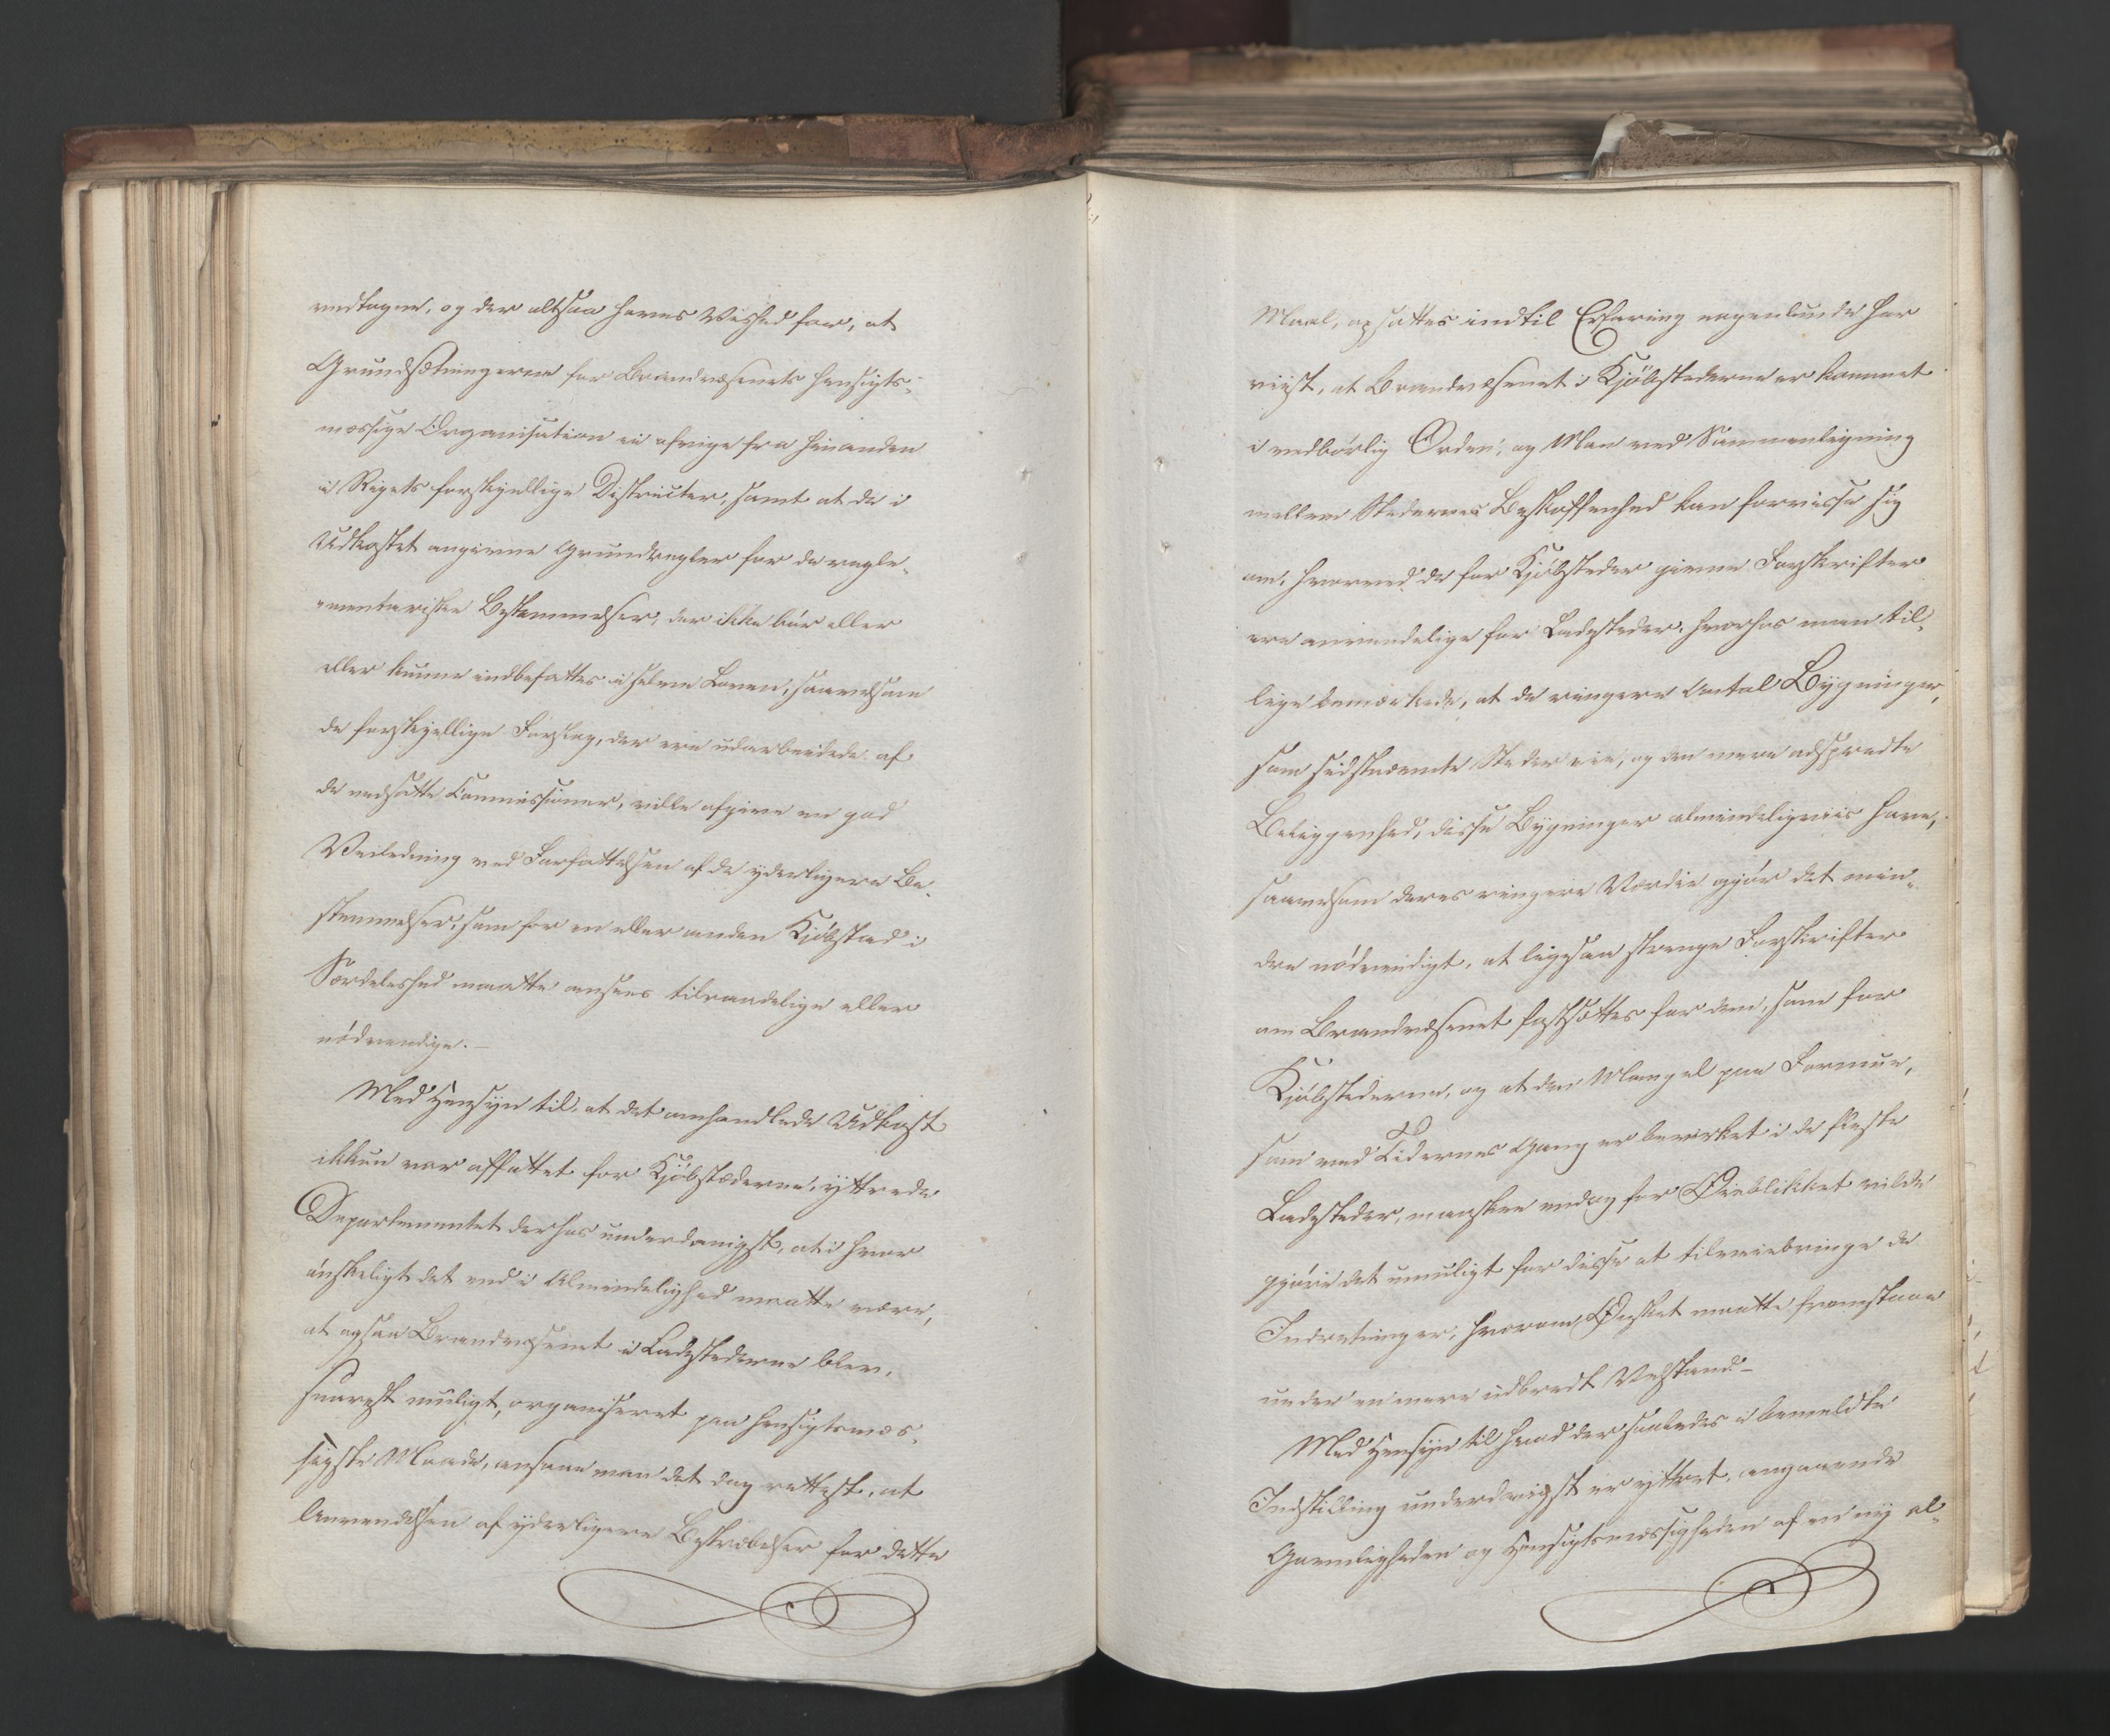 vedtagne, og der altsaa haves Vished for, at
Grundsætningerne for Brandvæsenets hensigts-
mæssige Organisation ei afvige fra hinanden
i Rigets forskjellige Districter, samt at de i
Udkastet angivne Grundregler for de regle-
mentariske Bestemmelser, der ikke bør eller
eller kunne indbefattes i selve Loven, saavelsom
de forskjellige Forslag, der ere udarbeidede af
de nedsatte Commissioner, ville afgive en god
Veiledning ved Forfattelsen af de yderligere Be-
stemmelser, som for en eller anden Kjøbstad i
Særdeleshed maatte ansees tilraadelige eller
nødvendige. —
Med Hensyn til, at det omhandlede Udkast
ikkun var affattet for Kjøbstæderne, yttrede
Departementet derhos underdanigst, at i hvor
ønskeligt det end i Almindelighed maatte være,
at ogsaa Brandvæsenet i Ladestederne blev,
snarest muligt, organiseret paa hensigtsmæs-
sigste Maade, ansaae man det dog rettest, at
Anvendelsen af yderligere Bestræbelser for dette
Maal, opsættes indtil Erfaring nogenlunde har
viist, at Brandvæsenet i Kjöbstederne er kommet
i vedbörlig Orden, og Man ved Sammenligning
mellem Stedernes Beskaffenhed kan forvisse sig
om, hvorvidt de for Kjøbsteder givne Forskrifter
ere anvendelige for Ladesteder, hvorhos man til-
lige bemærkede, at de ringere Antal Bygninger,
som sidstnævnte Steder eie, og den mere adspredte
Beliggenhed, disse Bygninger almindeligviis have,
saavelsom deres ringere Værdie gjør det min-
dre nødvendigt, at ligesaa strenge Forskrifter
om Brandvæsenet fastsættes for dem, som for
Kjøbstederne, og at den Mangel paa Formue,
som ved Tidernes Gang er bevirket i de fleste
Ladesteder, maaskee endog for Øieblikket vilde
gjøre det umuligt for disse at tilveiebringe de
Indretninger, hvorom Ønsket maatte fremstaae
under en mere udbredt Velstand. —
Med Hensyn til hvad der saaledes i bemeldte
Indstilling underdanigst er yttret, angaaende
Gavnligheden og Hensigtsmæssigheden af en ny al-